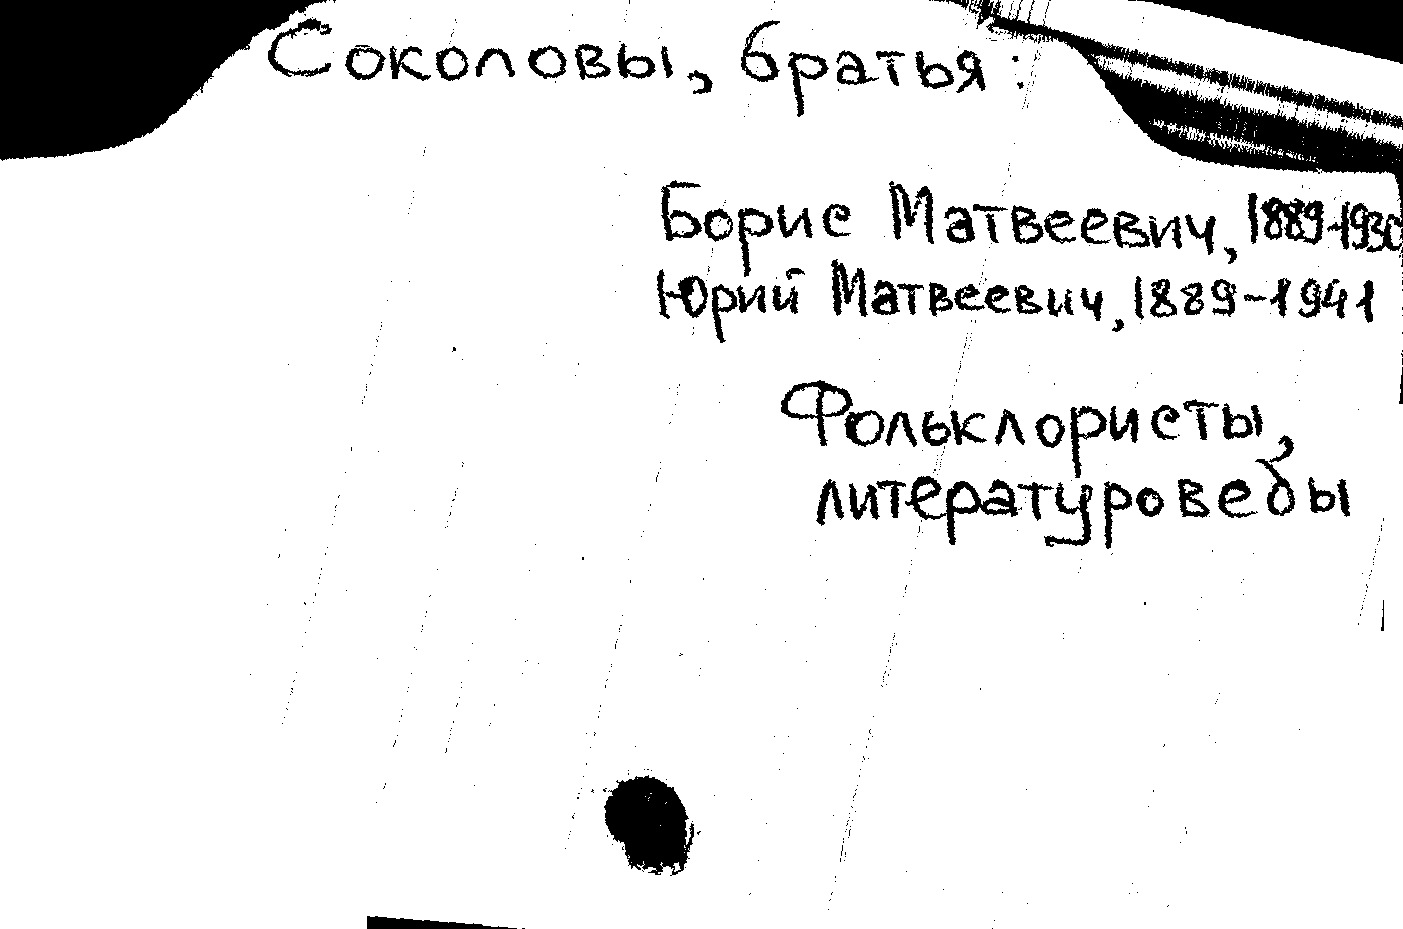 Соколовы, братья:
Борис Матвеевич, 1889-1930
Юрий Матвеевич, 1889-1941
Фольклористы,
литературоведы